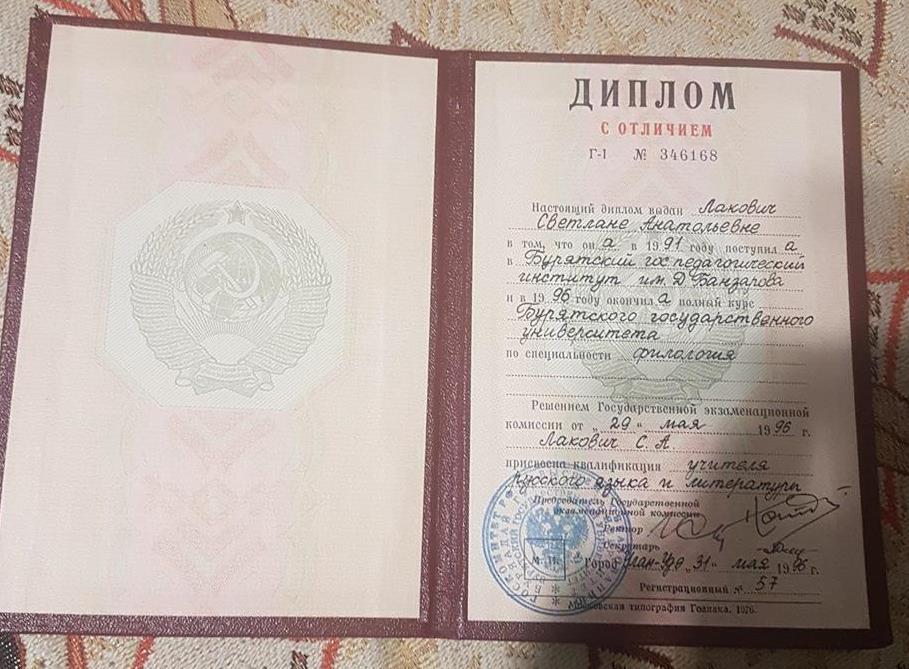 ДИПЛОМ
С ОТЛИЧИЕМ
Г-I № 346168
Настоящий диплом выдан Лакович
Светлане Анатольевне
в том, что он а в 1991 году поступил а
в Бурятский гос педагогический
институт им. Д Банзарова
и в 1996 году окончил а полный курс
Бурятского государственного
университета
по специальности филология
Решением Государственной экзаменационной
комиссии от „29“ мая 1996 г.
Лакович С. А.
присвоена квалификация учителя
русского языка и литературы
Председатель Государственной
экзаменационной комиссии
Ректор
Секретарь
М. П. Город Улан-Удэ „31“ мая 1996 г.
Регистрационный № 57
Московская типография Гознака. 1976.